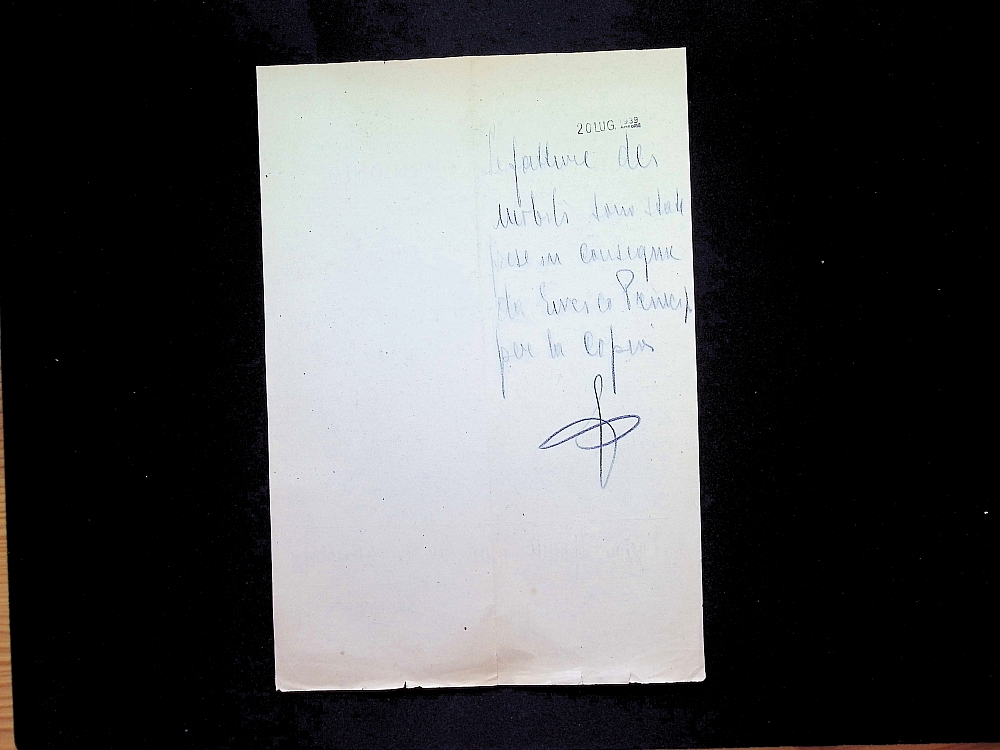 20 LUG. 1939
Le fatture dei
mobili sono state
prese in consegna
da
per la copia